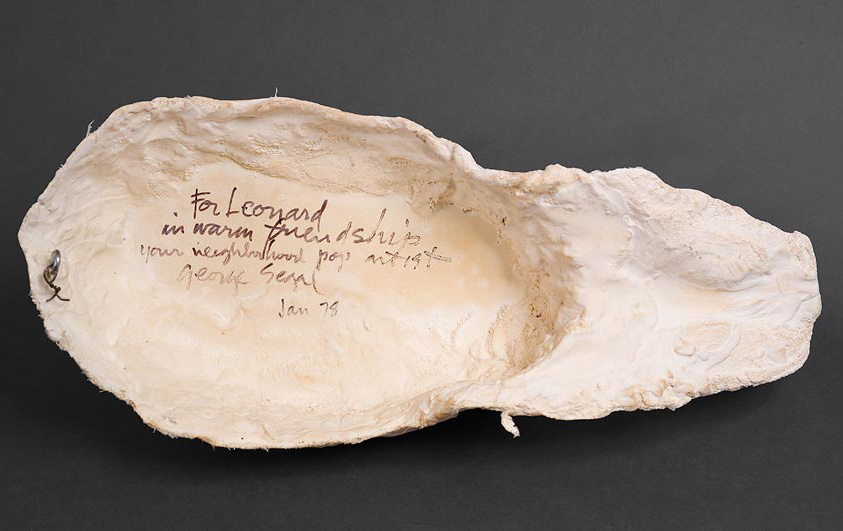 For Leonard
in warm friendship
your neighborhood pop artist
George Segal
Jan 78